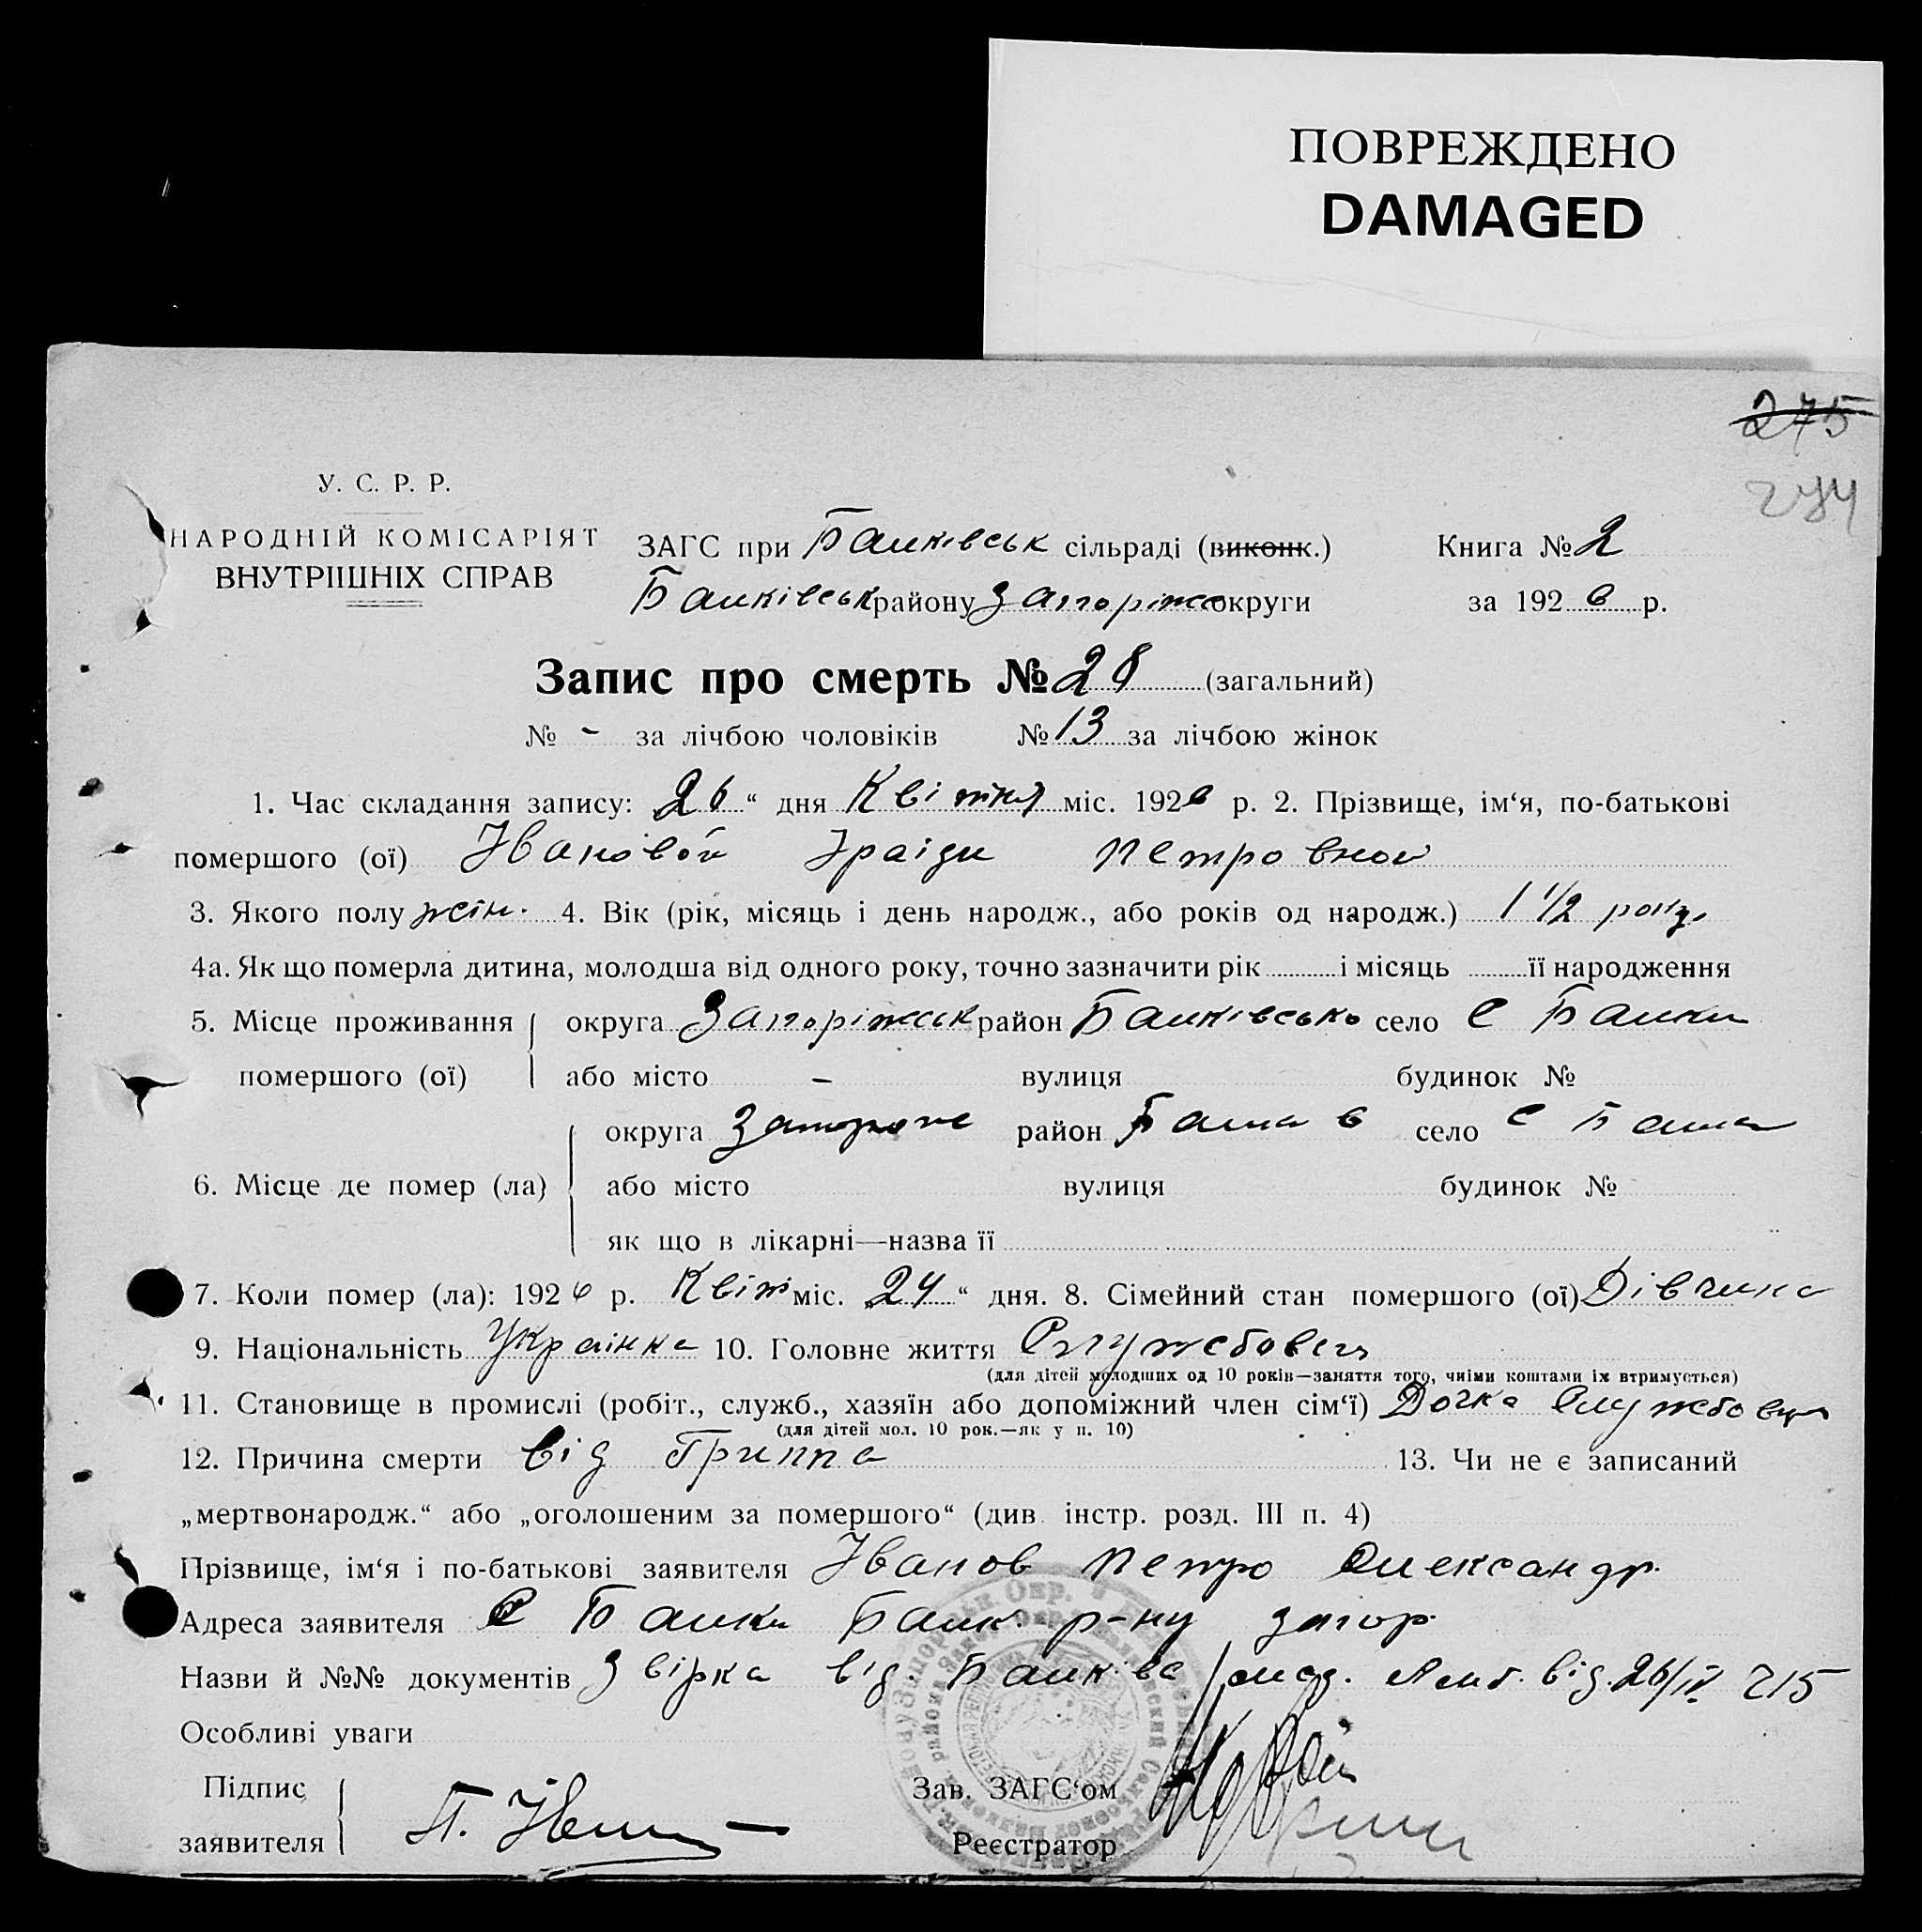 ПОВРЕЖДЕНО
DAMAGED
275
274
У. С. Р. Р.
НАРОДНІЙ КОМІСАРІЯТ
ВНУТРІШНІХ СПРАВ
ЗАГС при Балківськ сільраді (виконк.) Книга № 2
Балківськ району Запоріжс округи за 1926 р.
Запис про смерть № 28 (загальний)
№ - за лічбою чоловіків № 13 за лічбою жінок
1. Час складання запису: 26 “ дня Квітня міс. 1926 р. 2. Прізвище, ім‘я, по-батькові
помершого (ої) Івановой Іраіди Петровной
3. Якого полу жін. 4. Вік (рік, місяць і день народж., або років од народж.) 1 1/2 року
4а. Як що померла дитина, молодша від одного року, точно зазначити рік і місяць її народження
5. Місце проживання округа Запоріжськ район Балківсько село С Балки
помершого (ої) або місто - вулиця будинок №
округа район Балкив село С Балки
6. Місце де помер (ла) або місто вулиця будинок №
як що в лікарні—назва її
7. Коли помер (ла): 1926 р. Квітн міс. „24“ дня. 8. Сімейний стан помершого (ої) Дівчина
9. Національність Українка 10. Головне життя Службовець
(для дітей молодших од 10 років—заняття того, чиїми коштами їх втримується)
11. Становище в промислі (робіт., служб., хазяїн або допоміжний член сім‘ї) Дочка Службовця
(для дітей мол. 10 рок.—як у п. 10)
12. Причина смерти від Гриппа 13. Чи не є записаний
„мертвонародж.“ або „оголошеним за помершого“ (див. інстр. розд. III п. 4)
Прізвище, ім‘я і по-батькові заявителя Іванов Петро Олександр.
Адреса заявителя С Балки Балк. р-ну Запор
Назви й №№ документів Звірка від Балківс мед. Амб. від 26/IV 215
Особливі уваги
Підпис
заявителя П. Іванов
Зав. ЗАГС‘ом
Реєстратор